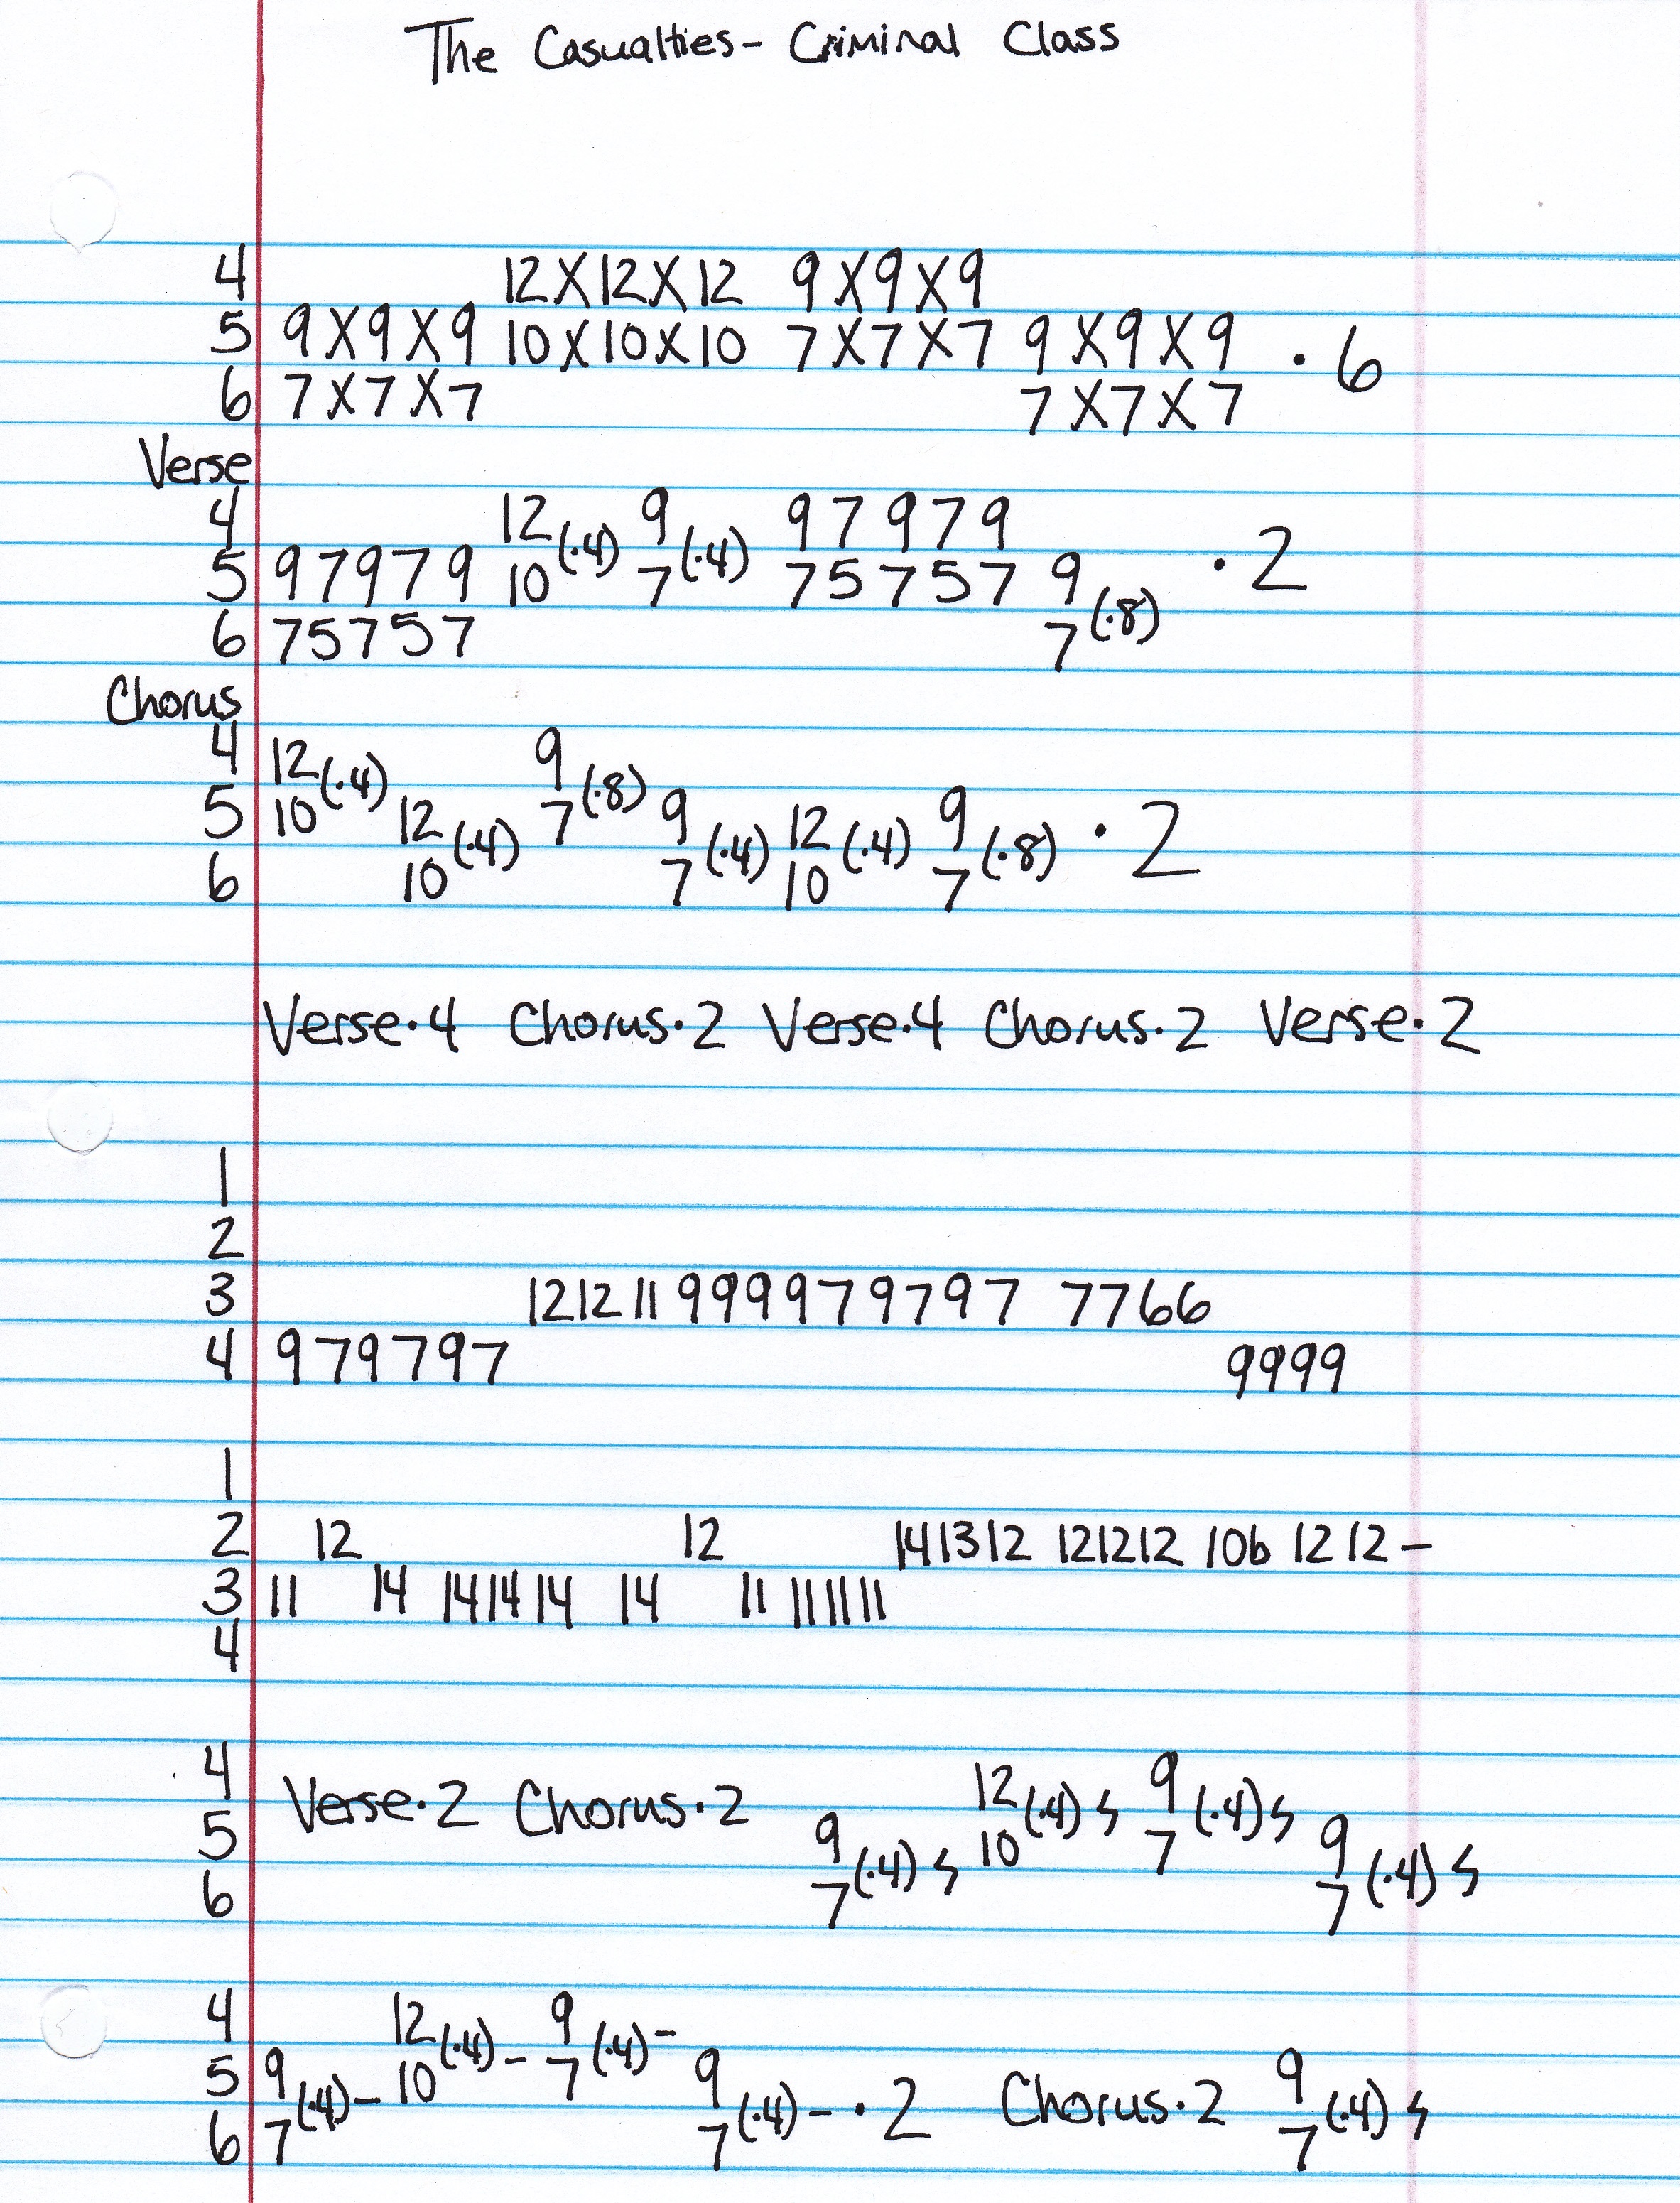 The Casualties- Criminal Class
4 12X12X12 9X9X9
5 9X9X9 10X10X10 7X7X7 9X9X9 · 6
6 7X7X7 7X7X7
Verse
4 12 9 9 7 9 7 9
5 9 7 9 7 9 10 (·4) 7 (·4) 7 5 7 5 7 9 · 2
6 7 5 7 5 7 7 (·8)
Chorus
4 12 (·4) 9
5 10 12 7 (·8) 9 12 9 · 2
6 10 (·4) 7 (·4) 10 (·4) 7 (·8)
Verse·4 Chorus·2 Verse·4 Chorus·2 Verse·2
1
2
3 12 12 11 9 9 9 9 7 9 7 9 7 7 7 6 6
4 9 7 9 7 9 7 9 9 9 9
1
2 12 12 14 13 12 12 12 12 10b 12 12 –
3 11 14 14 14 14 14 11 11 11 11
4
4 12 (·4) s 9 (·4) s
5 Verse·2 Chorus·2 9 10 7 9
6 7 (·4) s 7 (·4) s
4 12 (·4) – 9 (·4) –
5 9 10 7 9 Chorus·2 9
6 7 (·4) – 7 (·4) – · 2 7 (·4) s